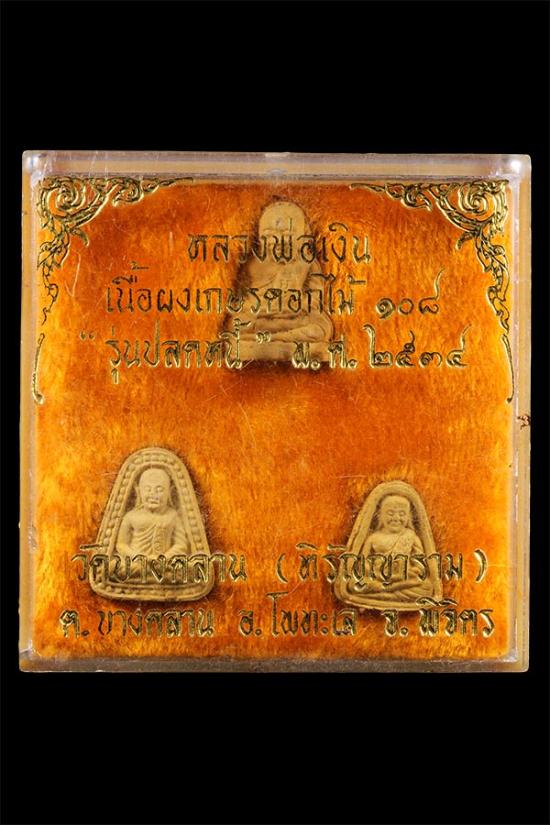 หลวงพ่อเงิน
เนื้อผงเกษรดอกไม้ ๑๐๘
"รุ่นปลดหนี้" พ.ศ. ๒๕๓๔
วัดบางคลาน (หิรัญญาราม)
ต. บางคลาน อ. โพทะเล จ. พิจิตร